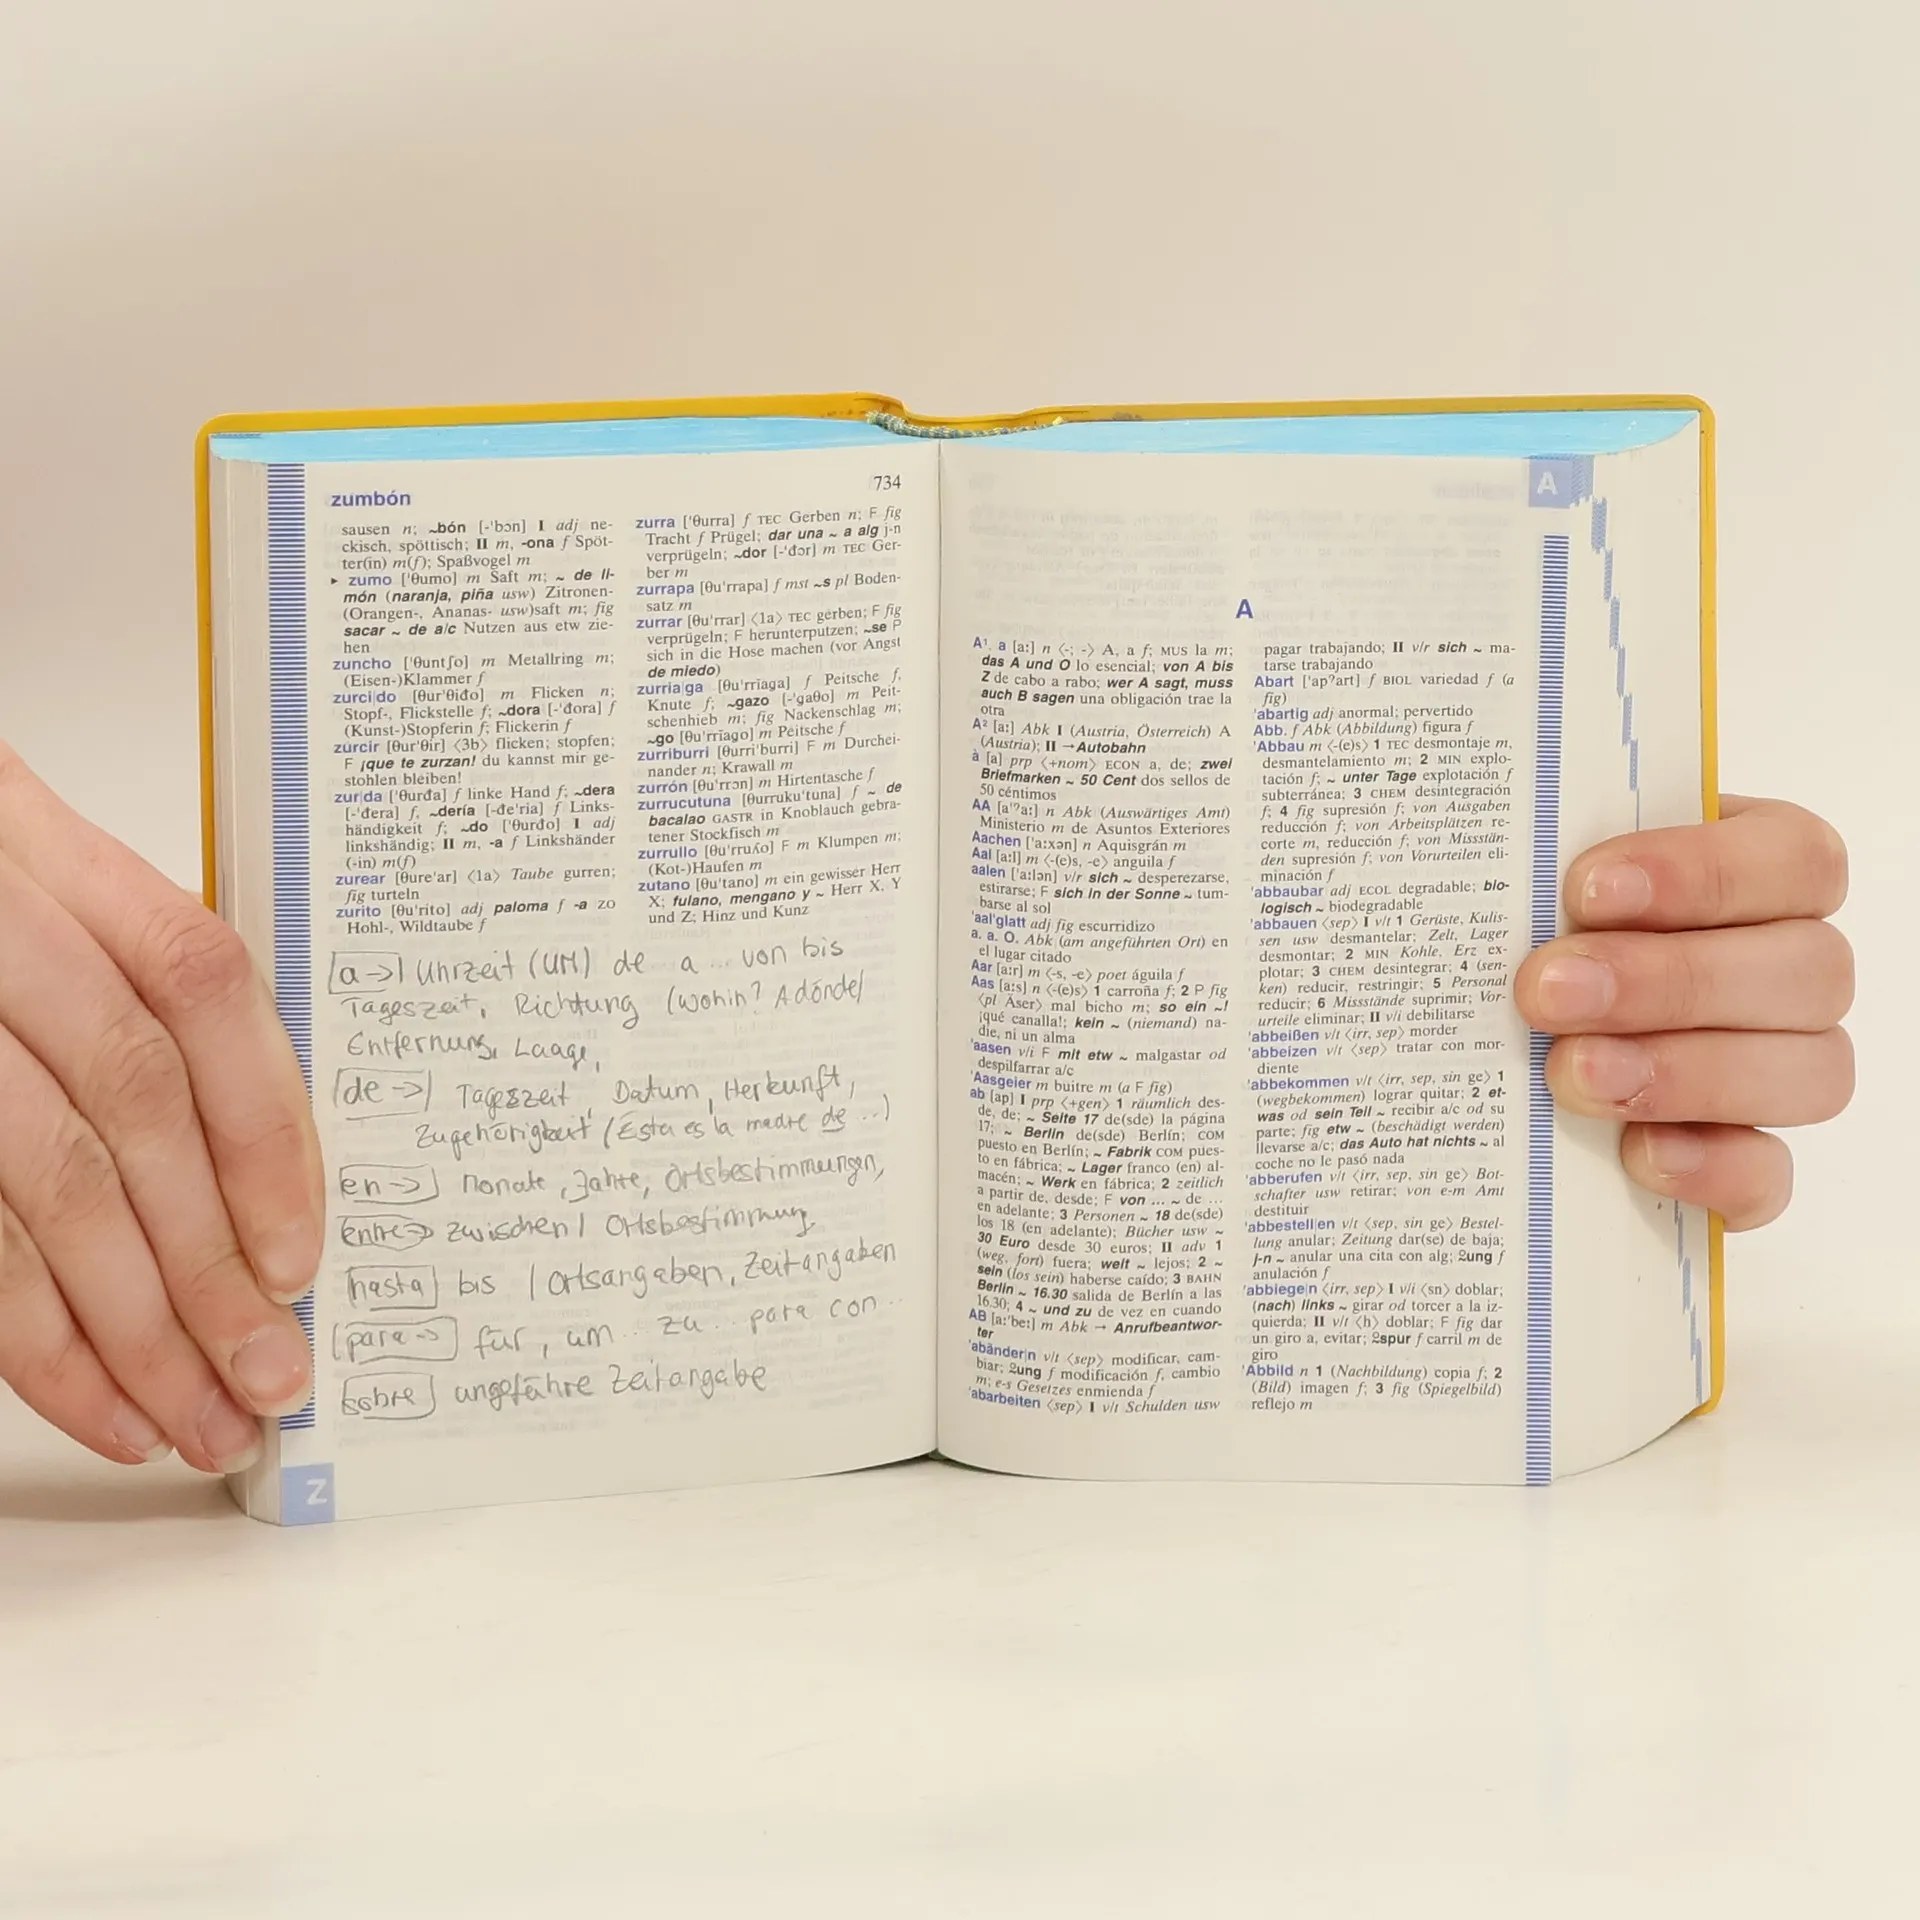 zumbón
734
sausen n; ~bón [-ˈbɔn] I adj ne-
ckisch, spöttisch; II m, -ona f Spöt-
ter(in) m(f); Spaßvogel m
▸ zumo [ˈθumo] m Saft m; ~ de li-
món (naranja, piña usw) Zitronen-
(Orangen-, Ananas- usw)saft m; fig
sacar ~ de a/c Nutzen aus etw zie-
hen
zuncho [ˈθuntʃo] m Metallring m;
(Eisen-)Klammer f
zurci|do [θurˈθiđo] m Flicken n;
Stopf-, Flickstelle f; ~dora [-ˈđora] f
(Kunst-)Stopferin f; Flickerin f
zurcir [θurˈθir] ⟨3b⟩ flicken; stopfen;
F ¡que te zurzan! du kannst mir ge-
stohlen bleiben!
zur|da [ˈθurđa] f linke Hand f; ~dera
[-ˈđera] f, ~dería [-đeˈria] f Links-
händigkeit f; ~do [ˈθurđo] I adj
linkshändig; II m, -a f Linkshänder
(-in) m(f)
zurear [θureˈar] ⟨1a⟩ Taube gurren;
fig turteln
zurito [θuˈrito] adj paloma f -a ZO
Hohl-, Wildtaube f
zurra [ˈθurra] f TEC Gerben n; F fig
Tracht f Prügel; dar una ~ a alg j-n
verprügeln; ~dor [-ˈđɔr] m TEC Ger-
ber m
zurrapa [θuˈrrapa] f mst ~s pl Boden-
satz m
zurrar [θuˈrrar] ⟨1a⟩ TEC gerben; F fig
verprügeln; F herunterputzen; ~se P
sich in die Hose machen (vor Angst
de miedo)
zurria|ga [θuˈrrĭaga] f Peitsche f,
Knute f; ~gazo [-ˈgaθo] m Peit-
schenhieb m; fig Nackenschlag m;
~go [θuˈrrĭago] m Peitsche f
zurriburri [θurriˈburri] F m Durchei-
nander n; Krawall m
zurrón [θuˈrrɔn] m Hirtentasche f
zurrucutuna [θurrukuˈtuna] f ~ de
bacalao GASTR in Knoblauch gebra-
tener Stockfisch m
zurrullo [θuˈrruʎo] F m Klumpen m;
(Kot-)Haufen m
zutano [θuˈtano] m ein gewisser Herr
X; fulano, mengano y ~ Herr X, Y
und Z; Hinz und Kunz
a -> Uhrzeit (UM) de a ... von bis
Tageszeit, Richtung (wohin? Adónde)
Entfernung, Laage,
de -> Tageszeit, Datum, Herkunft,
Zugehörigkeit (Esta es la madre de ..)
en -> Monate, Jahre, Ortsbestimmungen,
entre -> zwischen / Ortsbestimmung
hasta bis / Ortsangaben, Zeitangaben
para -> für, um ... zu ... para con ..
sobre ungefähre Zeitangabe
Z
A
A
A¹, a [aː] n ⟨-; -⟩ A, a f; MUS la m;
das A und O lo esencial; von A bis
Z de cabo a rabo; wer A sagt, muss
auch B sagen una obligación trae la
otra
A² [aː] Abk I (Austria, Österreich) A
(Austria); II → Autobahn
à [a] prp ⟨+nom⟩ ECON a, de; zwei
Briefmarken ~ 50 Cent dos sellos de
50 céntimos
AA [aˈʔaː] n Abk (Auswärtiges Amt)
Ministerio m de Asuntos Exteriores
Aachen [ˈaːxən] n Aquisgrán m
Aal [aːl] m ⟨-(e)s, -e⟩ anguila f
aalen [ˈaːlən] v/r sich ~ desperezarse,
estirarse; F sich in der Sonne ~ tum-
barse al sol
ˈaalˈglatt adj fig escurridizo
a. a. O. Abk (am angeführten Ort) en
el lugar citado
Aar [aːr] m ⟨-s, -e⟩ poet águila f
Aas [aːs] n ⟨-(e)s⟩ 1 carroña f; 2 P fig
⟨pl Äser⟩ mal bicho m; so ein ~!
¡qué canalla!; kein ~ (niemand) na-
die, ni un alma
ˈaasen v/i F mit etw ~ malgastar od
despilfarrar a/c
ˈAasgeier m buitre m (a F fig)
ab [ap] I prp ⟨+gen⟩ 1 räumlich des-
de, de; ~ Seite 17 de(sde) la página
17; ~ Berlin de(sde) Berlín; COM
puesto en Berlín; ~ Fabrik COM pues-
to en fábrica; ~ Lager franco (en) al-
macén; ~ Werk en fábrica; 2 zeitlich
a partir de, desde; F von ... ~ de ...
en adelante; 3 Personen ~ 18 de(sde)
los 18 (en adelante); Bücher usw ~
30 Euro desde 30 euros; II adv 1
(weg, fort) fuera; weit ~ lejos; 2 ~
sein (los sein) haberse caído; 3 BAHN
Berlin ~ 16.30 salida de Berlín a las
16.30; 4 ~ und zu de vez en cuando
AB [aːˈbeː] m Abk → Anrufbeantwor-
ter
ˈabänder|n v/t ⟨sep⟩ modificar, cam-
biar; ⵓung f modificación f, cambio
m; e-s Gesetzes enmienda f
ˈabarbeiten ⟨sep⟩ I v/t Schulden usw
pagar trabajando; II v/r sich ~ ma-
tarse trabajando
Abart [ˈapʔart] f BIOL variedad f (a
fig)
ˈabartig adj anormal; pervertido
Abb. f Abk (Abbildung) figura f
ˈAbbau m ⟨-(e)s⟩ 1 TEC desmontaje m,
desmantelamiento m; 2 MIN explo-
tación f; ~ unter Tage explotación f
subterránea; 3 CHEM desintegración
f; 4 fig supresión f; von Ausgaben
reducción f; von Arbeitsplätzen re-
corte m, reducción f; von Missstän-
den supresión f; von Vorurteilen eli-
minación f
ˈabbaubar adj ECOL degradable; bio-
logisch ~ biodegradable
ˈabbauen ⟨sep⟩ I v/t 1 Gerüste, Kulis-
sen usw desmantelar; Zelt, Lager
desmontar; 2 MIN Kohle, Erz ex-
plotar; 3 CHEM desintegrar; 4 (sen-
ken) reducir, restringir; 5 Personal
reducir; 6 Missstände suprimir; Vor-
urteile eliminar; II v/i debilitarse
ˈabbeißen v/t ⟨irr, sep⟩ morder
ˈabbeizen v/t ⟨sep⟩ tratar con mor-
diente
ˈabbekommen v/t ⟨irr, sep, sin ge⟩ 1
(wegbekommen) lograr quitar; 2 et-
was od sein Teil ~ recibir a/c od su
parte; fig etw ~ (beschädigt werden)
llevarse a/c; das Auto hat nichts ~ al
coche no le pasó nada
ˈabberufen v/t ⟨irr, sep, sin ge⟩ Bot-
schafter usw retirar; von e-m Amt
destituir
ˈabbestell|en v/t ⟨sep, sin ge⟩ Bestel-
lung anular; Zeitung dar(se) de baja;
j-n ~ anular una cita con alg; ⵓung f
anulación f
ˈabbiege|n ⟨irr, sep⟩ I v/i ⟨sn⟩ doblar;
(nach) links ~ girar od torcer a la iz-
quierda; II v/t ⟨h⟩ doblar; F fig dar
un giro a, evitar; ⵓspur f carril m de
giro
ˈAbbild n 1 (Nachbildung) copia f; 2
(Bild) imagen f; 3 fig (Spiegelbild)
reflejo m